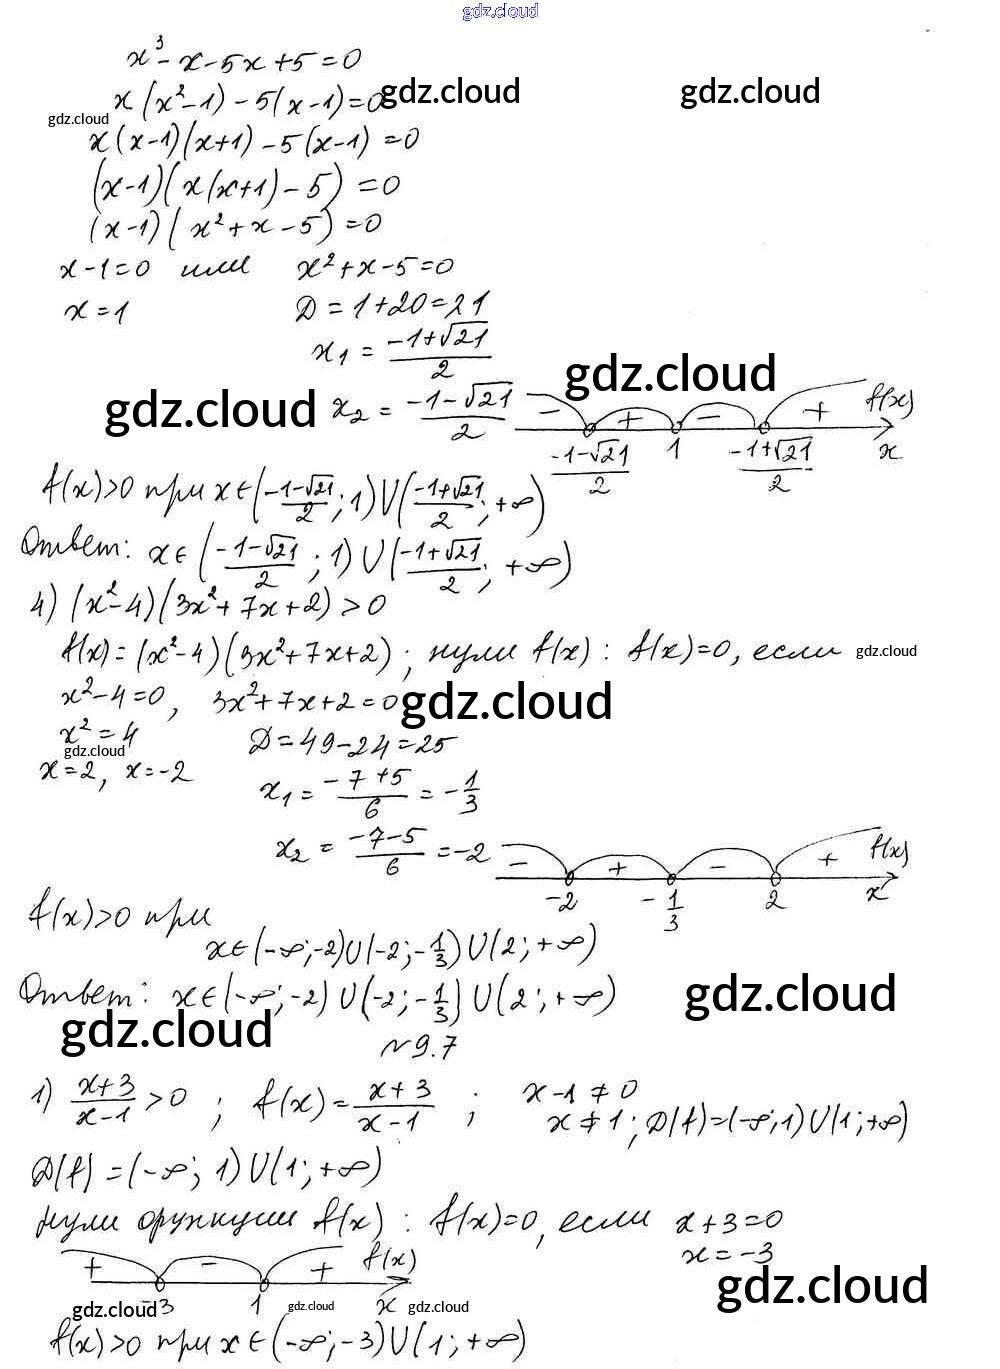 gdz.cloud
x³ - x - 5x + 5 = 0
x(x² - 1) - 5(x - 1) = 0 gdz.cloud gdz.cloud
gdz.cloud
x(x - 1)(x + 1) - 5(x - 1) = 0
(x - 1)(x(x + 1) - 5) = 0
(x - 1)(x² + x - 5) = 0
x - 1 = 0 или x² + x - 5 = 0
x = 1 D = 1 + 20 = 21
x₁ = (-1 + √21)/2
gdz.cloud
gdz.cloud x₂ = (-1 - √21)/2
- + - + f(x)
(-1 - √21)/2 1 (-1 + √21)/2 x
f(x) > 0 при x ∈ ((-1 - √21)/2 ; 1) ∪ ((-1 + √21)/2 ; +∞)
Ответ: x ∈ ((-1 - √21)/2 ; 1) ∪ ((-1 + √21)/2 ; +∞)
4) (x² - 4)(3x² + 7x + 2) > 0
f(x) = (x² - 4)(3x² + 7x + 2) ; нули f(x) : f(x) = 0, если gdz.cloud
x² - 4 = 0 , 3x² + 7x + 2 = 0 gdz.cloud
x² = 4 D = 49 - 24 = 25
gdz.cloud
x = 2, x = -2
x₁ = (-7 + 5)/6 = -1/3
x₂ = (-7 - 5)/6 = -2
- + - + f(x)
-2 -1/3 2 x
f(x) > 0 при
x ∈ (-∞; -2) ∪ (-2; -1/3) ∪ (2; +∞)
Ответ: x ∈ (-∞; -2) ∪ (-2; -1/3) ∪ (2; +∞) gdz.cloud
gdz.cloud
№ 9.7
1) (x + 3)/(x - 1) > 0 ; f(x) = (x + 3)/(x - 1) ; x - 1 ≠ 0
x ≠ 1 ; D(f) = (-∞; 1) ∪ (1; +∞)
D(f) = (-∞; 1) ∪ (1; +∞)
Нули функции f(x) : f(x) = 0, если x + 3 = 0
x = -3
+ - + f(x)
gdz.cloud
-3 1 x
gdz.cloud gdz.cloud gdz.cloud
f(x) > 0 при x ∈ (-∞; -3) ∪ (1; +∞)